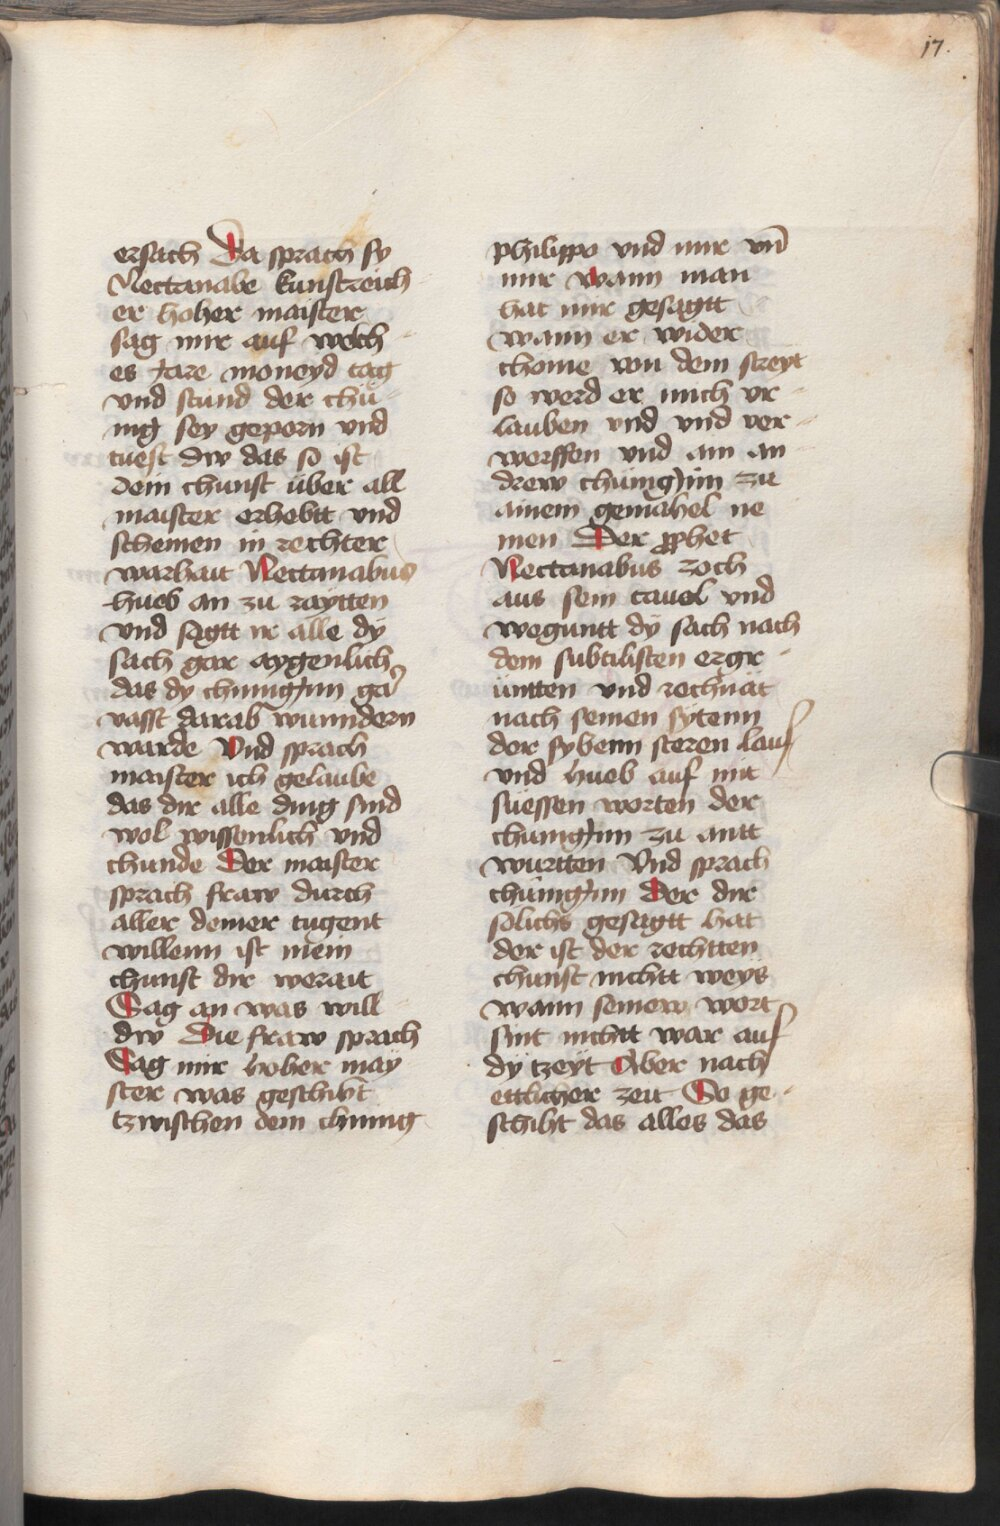 17.
ersach Da sprach sy
Nectanabe kunstreich
er hoher maister
sag mir auf welch
es jare moneyd tag
vnd stund der chü
nig sey geporn vnd
tuest dw das so ist
dein chunst über all
maister erhebtt vnd
scheinen in rechter
warhait Nectanabus
hueb an zu raytten
vnd sagtt ir alle dÿ
sach gar aygenlich
das dy chunigjnn gar
vasst darab wunndern
warde Vnd sprach
maister ich gelaube
das dir alle ding sind
wol wissenlich vnd
chunde Der maister
sprach fraw durch
aller deiner tugent
willenn ist mein
chunst dir werait
Sag an was will
dw Die fraw sprach
Sag mir hoher may
ster was geschiht
tzwischen dem chunig
philippo vnd mir vnd
mir wann man
hat mir gesagtt
wann er wider
chome von dem streyt
so werd er mich vr
lauben vnd vnd ver
werffen vnd ain an
drew chünigjnn zu
ainem gemahel ne
men Der prophet
Nectanabus zoch
aus sein tauel vnd
weguntt dÿ sach nach
dem subtilisten ergr
üntten vnd rechnät
nach seinen sytenn
der sybenn steren lauf
vnd hueb auf mit
süessen worten der
chunigjnn zu antt
wurtten Vnd sprach
chünigjnn Der dir
solichs gesagtt hat
der ist der rechtten
chunst nichtt weys
wann seinew wort
sint nichtt war auf
dÿ tzeyt Aber nach
ettlicher zeit So ge
schiht das alles das